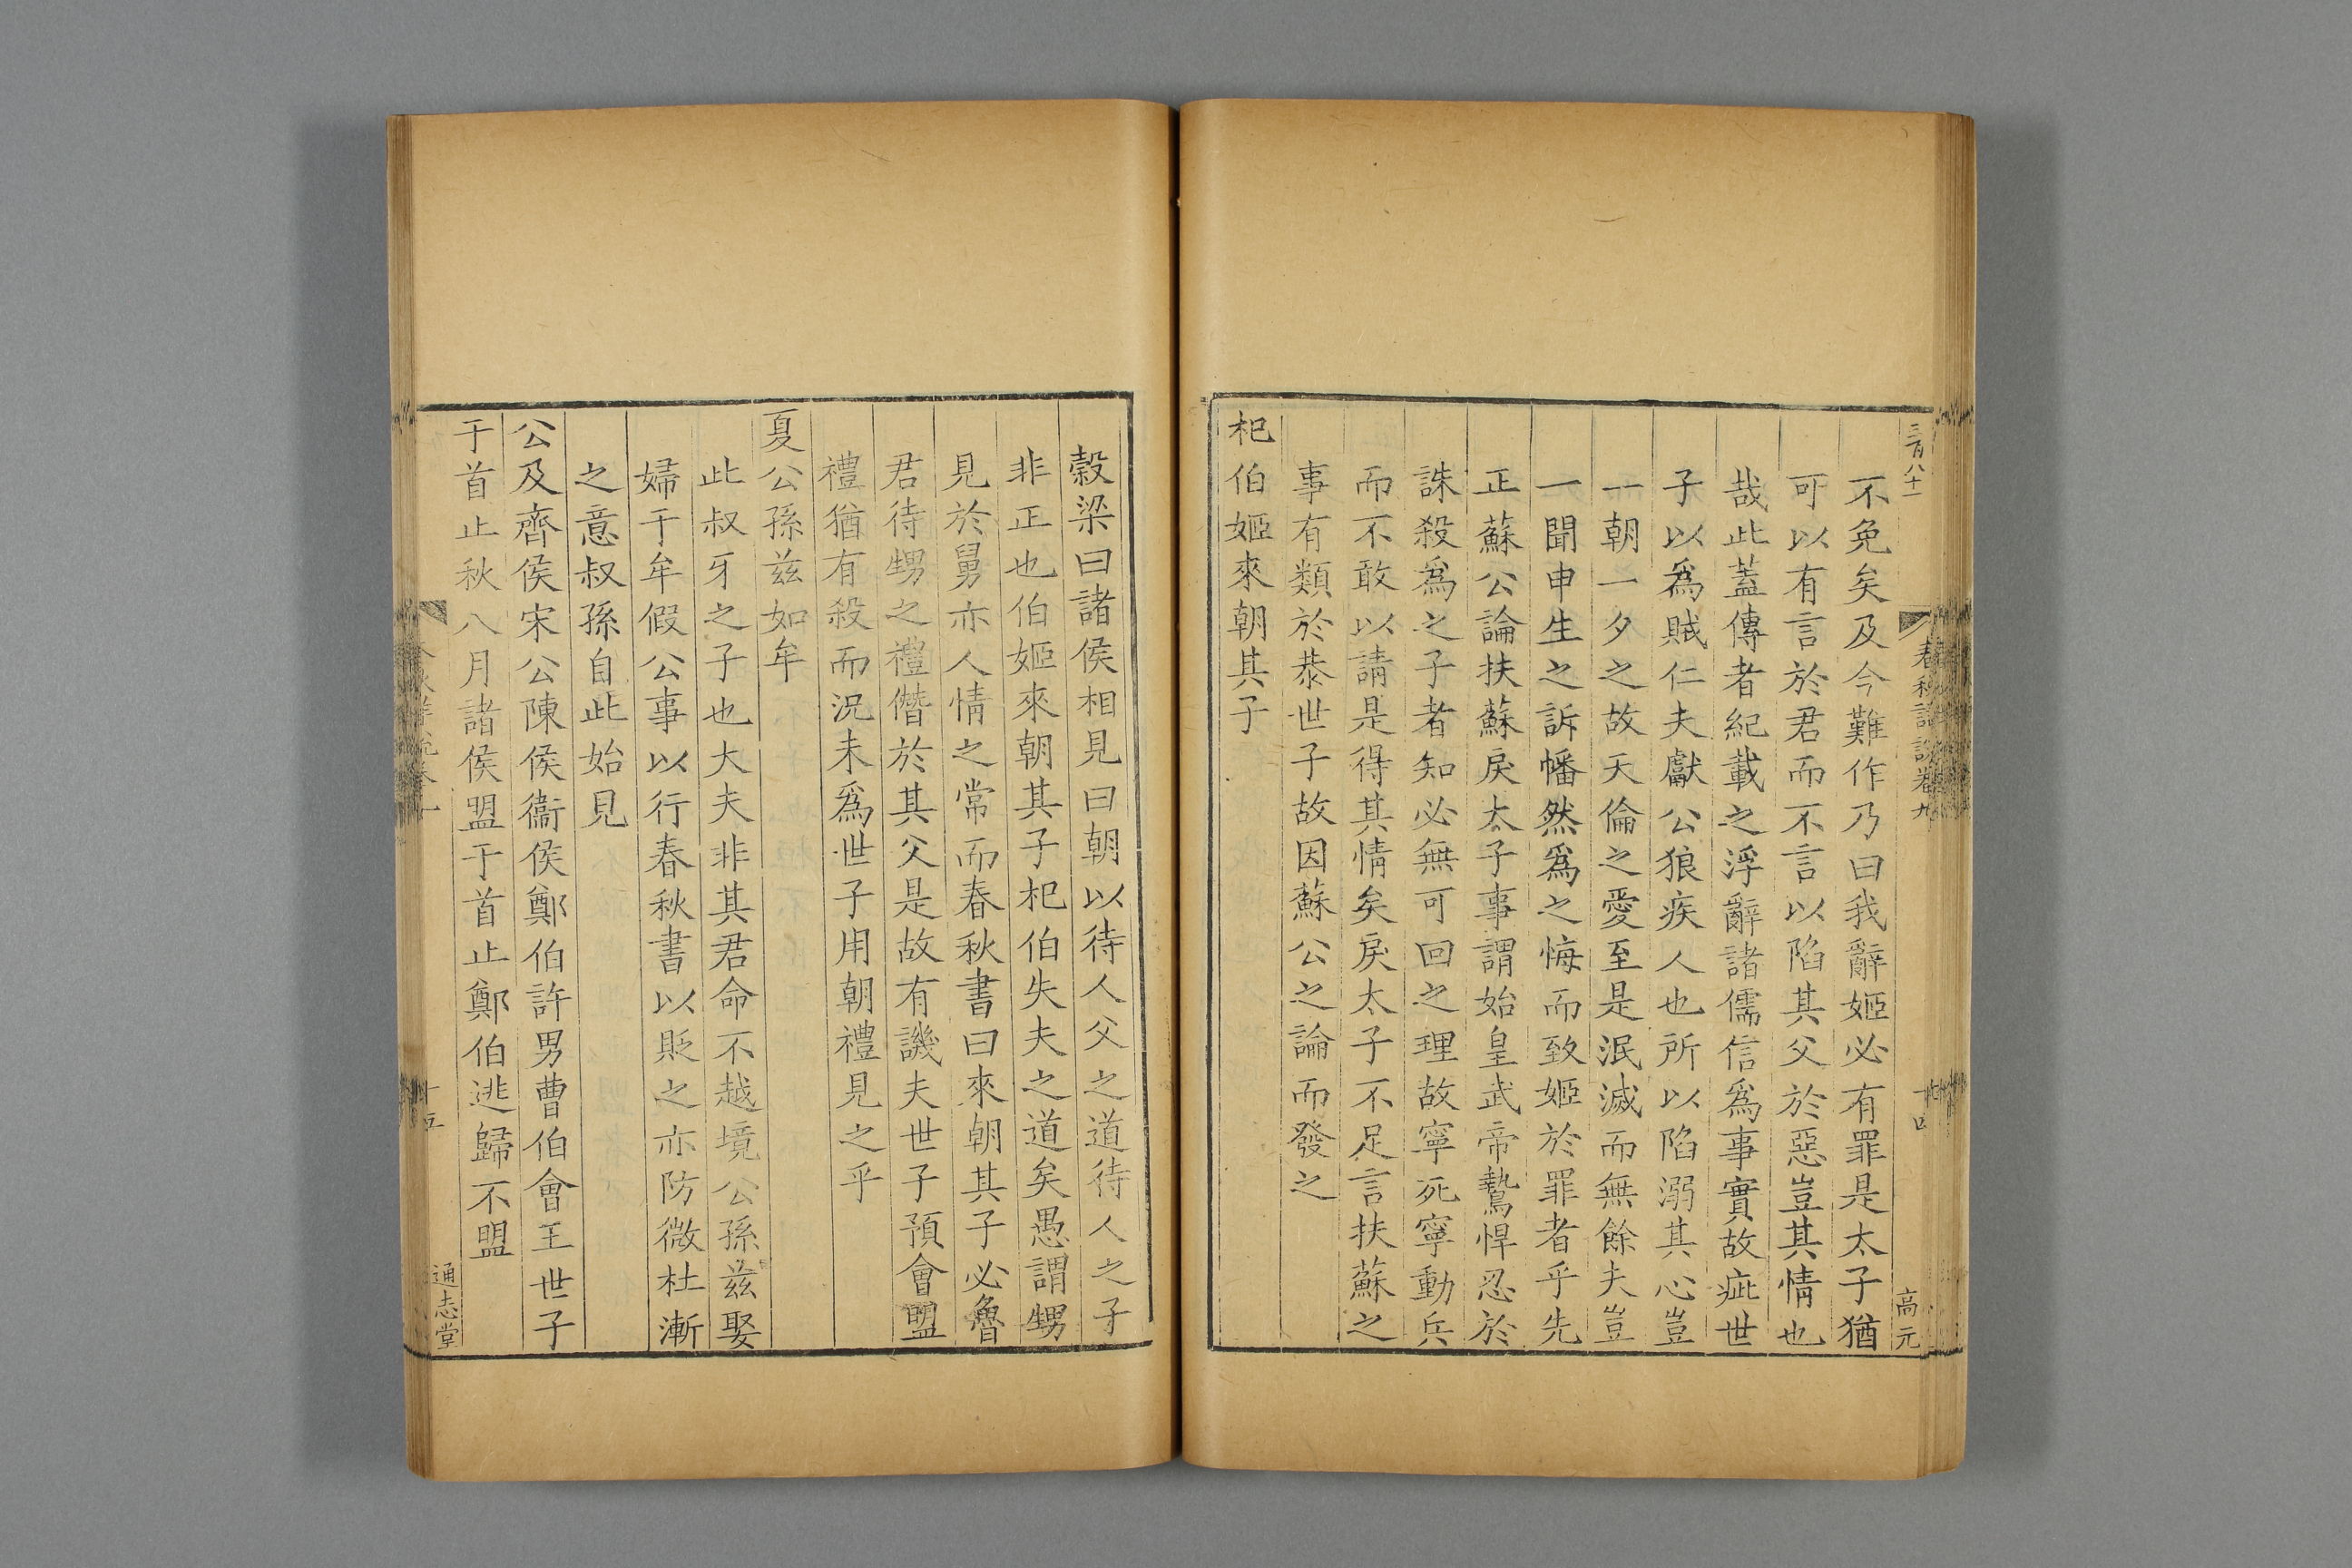 三百八十一
春秋詳說卷九
十四
高元
不免矣及今難作乃曰我辭姬必有罪是太子猶
可以有言於君而不言以陷其父於惡豈其情也
哉此蓋傳者紀載之浮辭諸儒信爲事實故疵世
子以爲賊仁夫獻公狼疾人也所以陷溺其心豈
一朝一夕之故天倫之愛至是泯滅而無餘夫豈
一聞申生之訴幡然爲之悔而致姬於罪者乎先
正蘇公論扶蘇戾太子事謂始皇武帝鷙悍忍於
誅殺爲之子者知必無可回之理故寧死寧動兵
而不敢以請是得其情矣戾太子不足言扶蘇之
事有類於恭世子故因蘇公之論而發之
杞伯姬來朝其子
穀梁曰諸侯相見曰朝以待人父之道待人之子
非正也伯姬來朝其子杞伯失夫之道矣愚謂甥
見於舅亦人情之常而春秋書曰來朝其子必魯
君待甥之禮僭於其父是故有譏夫世子預會盟
禮猶有殺而況未爲世子用朝禮見之乎
夏公孫茲如牟
此叔牙之子也大夫非其君命不越境公孫茲娶
婦于牟假公事以行春秋書以貶之亦防微杜漸
之意叔孫自此始見
公及齊侯宋公陳侯衞侯鄭伯許男曹伯會王世子
于首止秋八月諸侯盟于首止鄭伯逃歸不盟
十五
通志堂